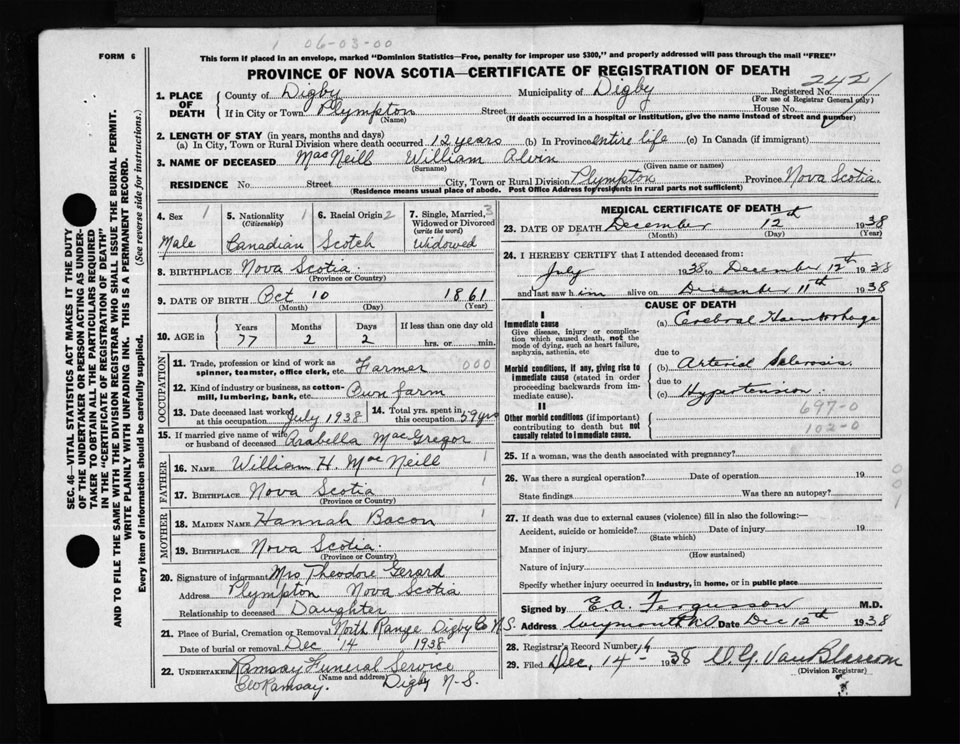 1 06-03-00
FORM 6
This form if placed in an envelope, marked "Dominion Statistics—Free, penalty for improper use $300," and properly addressed will pass through the mail "FREE"
PROVINCE OF NOVA SCOTIA—CERTIFICATE OF REGISTRATION OF DEATH
2421
1. PLACE OF DEATH County of Digby Municipality of Digby Registered No. (For use of Registrar General only)
If in City or Town Plympton (Name) Street House No.
(If death occurred in a hospital or institution, give the name instead of street and number)
2. LENGTH OF STAY (in years, months and days)
(a) In City, Town or Rural Division where death occurred 12 years (b) In Province entire life (c) In Canada (if immigrant)
3. NAME OF DECEASED MacNeill William Alvin
(Surname) (Given name or names)
RESIDENCE No. Street City, Town or Rural Division Plympton Province Nova Scotia.
(Residence means usual place of abode. Post Office Address for residents in rural parts not sufficient)
4. Sex 1 Male
5. Nationality 1 (Citizenship) Canadian
6. Racial Origin 2 Scotch
7. Single, Married, 3 Widowed or Divorced (write the word) Widowed
8. BIRTHPLACE Nova Scotia
(Province or Country)
9. DATE OF BIRTH Oct 10 1861
(Month) (Day) (Year)
10. AGE in Years Months Days If less than one day old
77 2 2 hrs. or min.
OCCUPATION
11. Trade, profession or kind of work as spinner, teamster, office clerk, etc. Farmer 000
12. Kind of industry or business, as cotton-mill, lumbering, bank, etc. Own farm
13. Date deceased last worked at this occupation July 1938 14. Total yrs. spent in this occupation 59 yrs
15. If married give name of wife or husband of deceased Arabella MacGregor
FATHER
16. NAME William H. MacNeill 1
17. BIRTHPLACE Nova Scotia
(Province or Country)
MOTHER
18. MAIDEN NAME Hannah Bacon 1
19. BIRTHPLACE Nova Scotia.
(Province or Country)
20. Signature of informant Mrs Theodore Gerard
Address Plympton Nova Scotia
Relationship to deceased Daughter
21. Place of Burial, Cremation or Removal North Range Digby Co N.S.
Date of burial or removal Dec 14 1938
22. UNDERTAKER Ramsay Funeral Service
(Name and address)
Ramsay. Digby N-S.
MEDICAL CERTIFICATE OF DEATH
23. DATE OF DEATH December 12th 1938
(Month) (Day) (Year)
24. I HEREBY CERTIFY that I attended deceased from:
July 1938 to December 12th 1938
and last saw him alive on December 11th 1938
CAUSE OF DEATH
I
Immediate cause (a) Cerebral Haemorrhage
Give disease, injury or complication which caused death, not the mode of dying, such as heart failure, asphyxia, asthenia, etc
due to
Morbid conditions, if any, giving rise to immediate cause (stated in order proceeding backwards from immediate cause).
(b) Arterial Sclerosis.
due to
(c) Hypertension.
II
697-0
Other morbid conditions (if important) contributing to death but not causally related to immediate cause.
102-0
25. If a woman, was the death associated with pregnancy?
26. Was there a surgical operation? Date of operation 19
State findings Was there an autopsy?
27. If death was due to external causes (violence) fill in also the following:—
Accident, suicide or homicide? Date of injury 19
(State which)
Manner of injury
(How sustained)
Nature of injury
Specify whether injury occurred in industry, in home, or in public place
Signed by E.A. Fergusson M.D.
Address Weymouth N.S. Date Dec 12th 1938
28. Registrar's Record Number 14
29. Filed Dec. 14- 1938
(Division Registrar)
SEC. 46—VITAL STATISTICS ACT MAKES IT THE DUTY
OF THE UNDERTAKER OR PERSON ACTING AS UNDER-
TAKER TO OBTAIN ALL THE PARTICULARS REQUIRED
IN THE "CERTIFICATE OF REGISTRATION OF DEATH"
AND TO FILE THE SAME WITH THE DIVISION REGISTRAR WHO SHALL ISSUE THE BURIAL PERMIT.
WRITE PLAINLY WITH UNFADING INK. THIS IS A PERMANENT RECORD.
Every item of information should be carefully supplied. (See reverse side for instructions.)